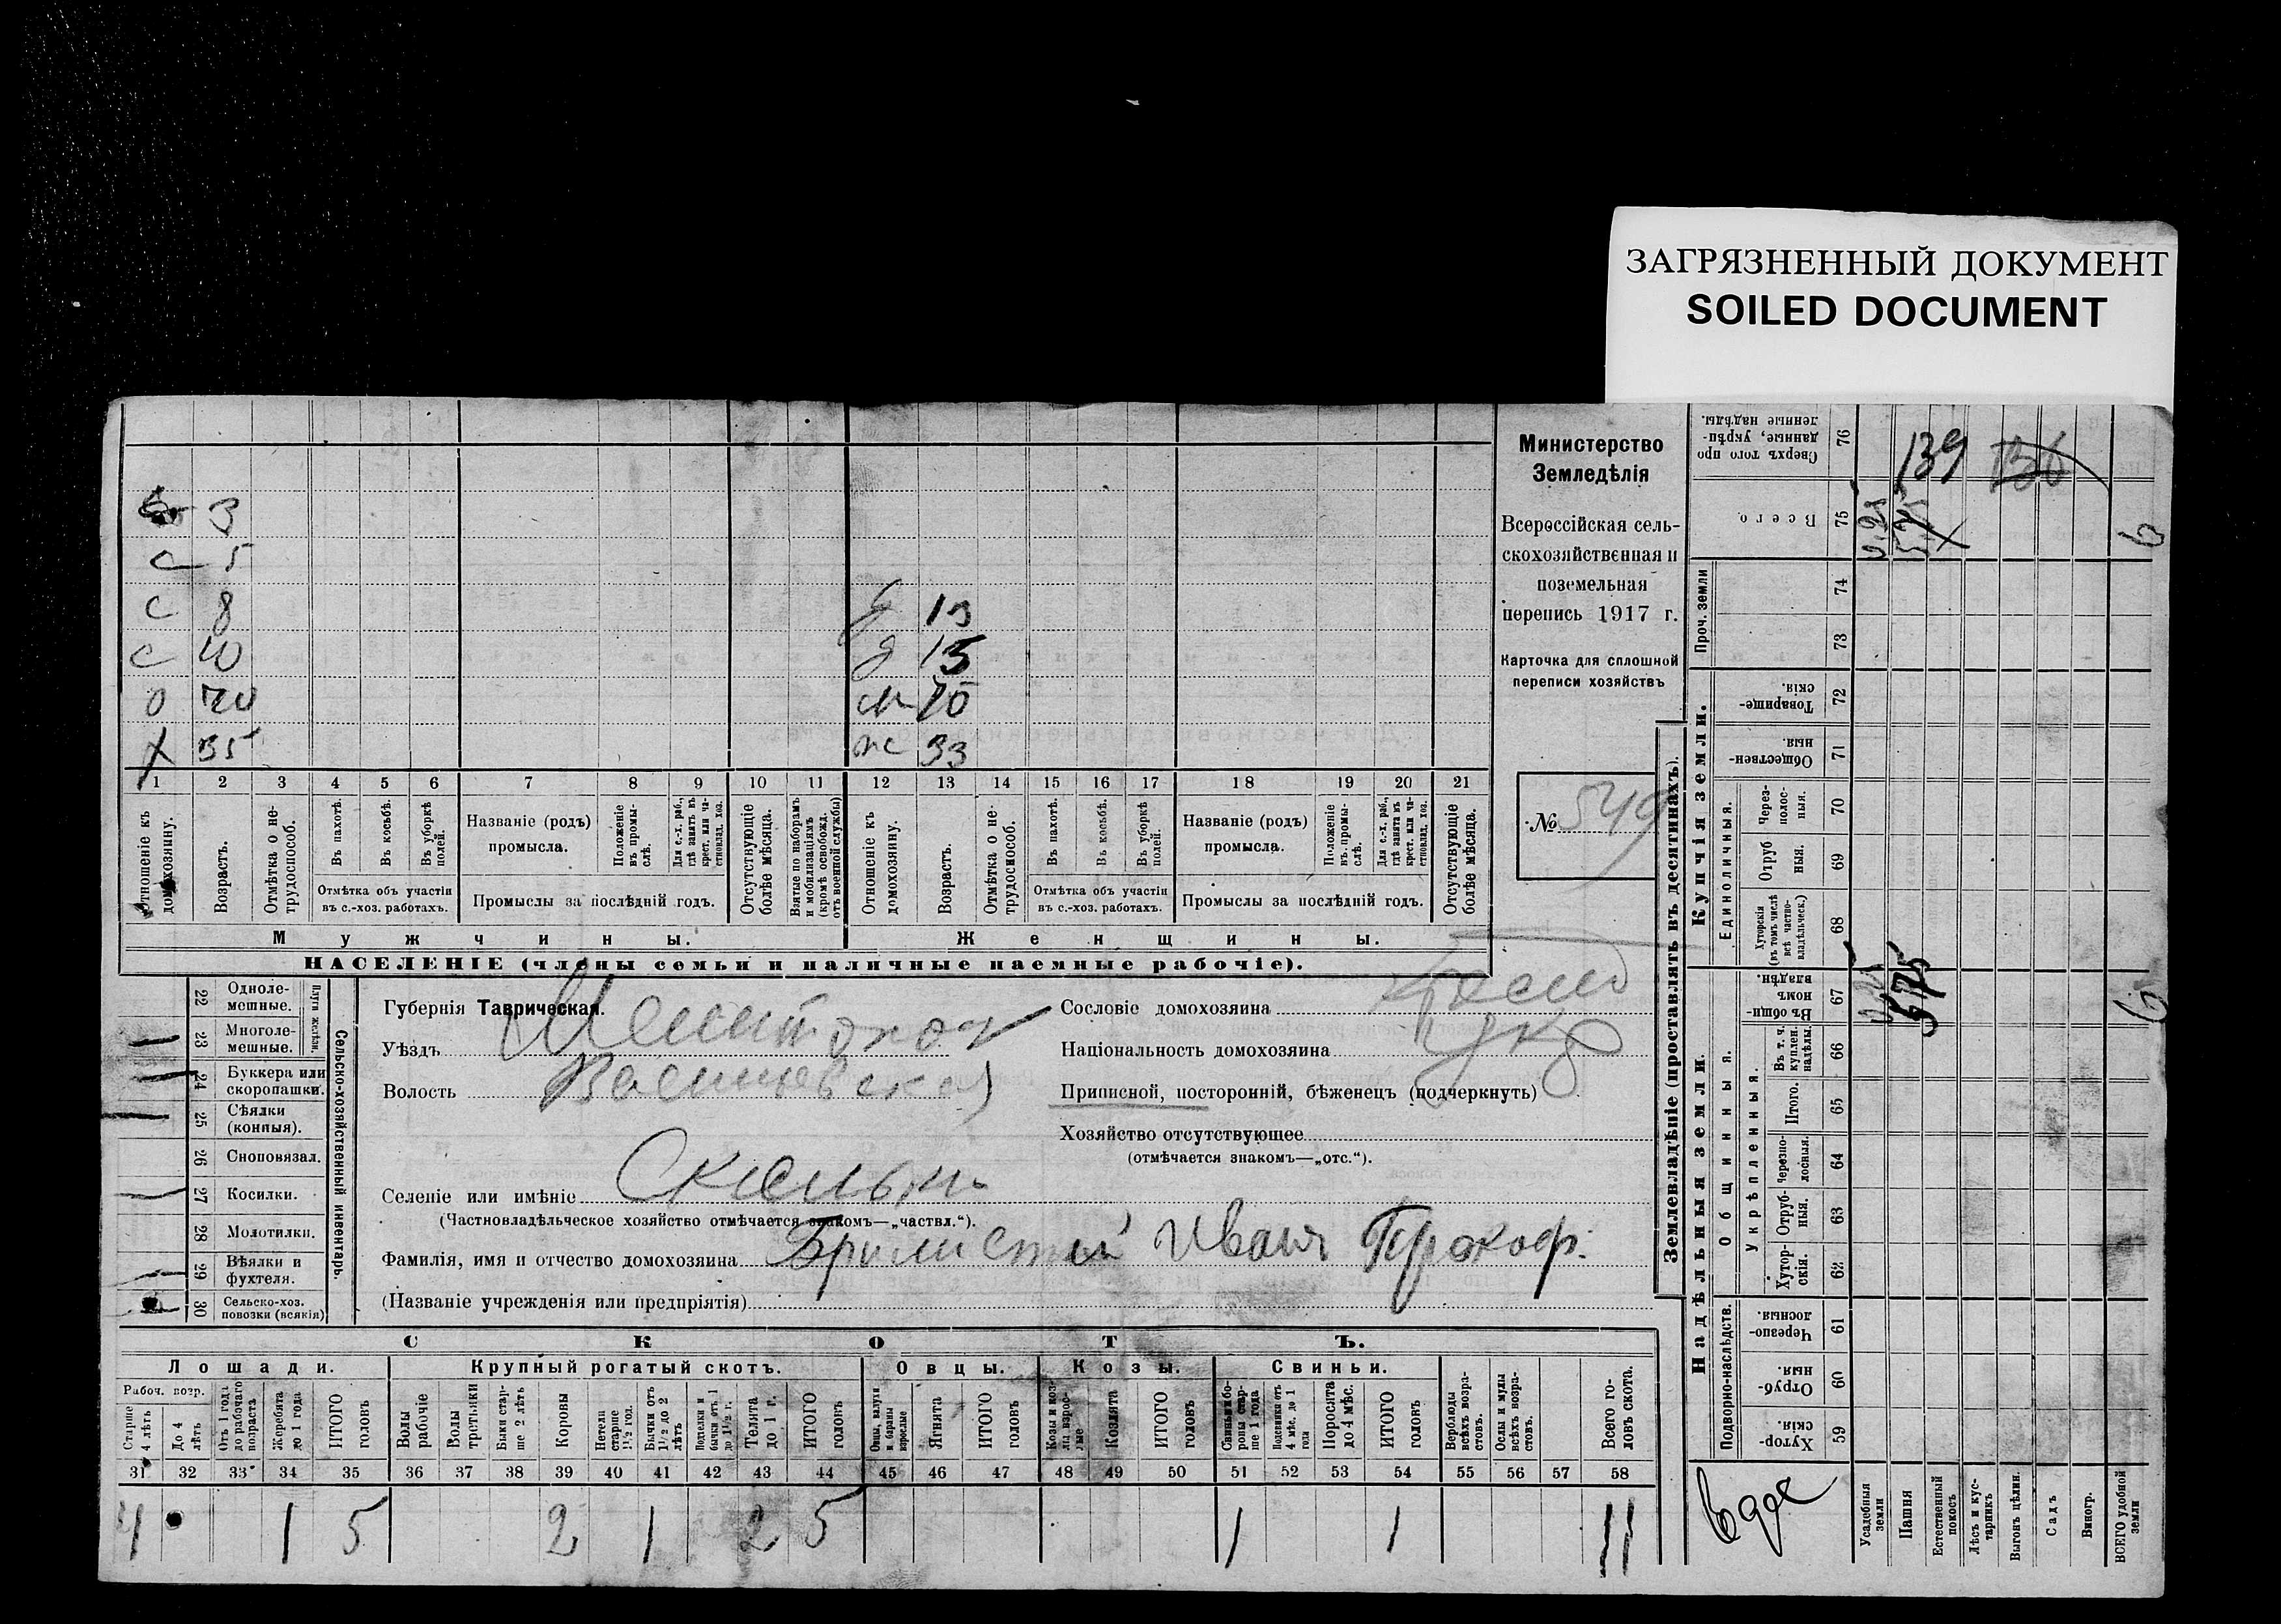 ЗАГРЯЗНЕННЫЙ ДОКУМЕНТ
SOILED DOCUMENT
3
с 5
с 8
д 13
с 10
д 15
о 70
м 70
х 35
ж 33
1 2 3 4 5 6 7 8 9 10 11 12 13 14 15 16 17 18 19 20 21
Отношеніе къ домохозяину.
Возрастъ.
Отмѣтка о нетрудоспособ.
Въ пахотѣ.
Въ косьбѣ.
Въ уборкѣ полей.
Отмѣтка объ участіи
въ с.-хоз. работахъ.
Названіе (родъ)
промысла.
Положеніе въ промыслѣ.
Для с.-х. раб., гдѣ занятъ въ крест. или частновлад. хоз.
Промыслы за послѣдній годъ.
Отсутствующіе болѣе мѣсяца.
Взятые по наборамъ и мобилизаціямъ (кромѣ освобожд. отъ военной службы)
Отношеніе къ домохозяину.
Возрастъ.
Отмѣтка о нетрудоспособ.
Въ пахотѣ.
Въ косьбѣ.
Въ уборкѣ полей.
Отмѣтка объ участіи
въ с.-хоз. работахъ.
Названіе (родъ)
промысла.
Положеніе въ промыслѣ.
Для с.-х. раб., гдѣ занята въ крест. или частновлад. хоз.
Промыслы за послѣдній годъ.
Отсутствующіе болѣе мѣсяца.
Мужчины.
Женщины.
НАСЕЛЕНІЕ (члены семьи и наличные наемные рабочіе).
Министерство
Земледѣлія
Всероссійская сель-
скохозяйственная и
поземельная
перепись 1917 г.
Карточка для сплошной
переписи хозяйствъ
№ 549
22 Одноле-
мешные.
23 Многоле-
мешные.
Плуги желѣзн.
24 Буккера или
скоропашки.
25 Сѣялки
(конныя).
26 Сноповязал.
27 Косилки.
28 Молотилки.
29 Вѣялки и
фухтеля.
30 Сельско-хоз.
повозки (всякія)
Сельско-хозяйственный инвентарь.
Губернія Таврическая.
Уѣздъ
Волость
Селеніе или имѣніе
(Частновладѣльческое хозяйство отмѣчается знакомъ—„частвл.“).
Фамилія, имя и отчество домохозяина Иванъ Прокоф.
(Названіе учрежденія или предпріятія)
Сословіе домохозяина
Національность домохозяина укр
Приписной, посторонній, бѣженецъ (подчеркнуть)
Хозяйство отсутствующее
(отмѣчается знакомъ—„отс.“).
СКОТЪ.
Лошади.
Крупный рогатый скотъ.
Овцы.
Козы.
Свиньи.
Рабоч. возр.
Старше 4 лѣтъ
До 4 лѣтъ
Отъ 1 года до рабочаго возраста
Жеребята до 1 года
ИТОГО головъ
Волы рабочіе
Волы третьяки
Быки старше 2 лѣтъ
Коровы
Нетели старше 1½ год.
Бычки отъ 1½ до 2 лѣтъ
Подтелки и бычки отъ 1 до 1½ г.
Телята до 1 г.
ИТОГО головъ
Овцы, валухи и бараны взрослые
Ягнята
ИТОГО головъ
Козы и козлы взрослые
Козлята
ИТОГО головъ
Свиньи и боровы старше 1 года
Подсвинки отъ 4 мѣс. до 1 года
Поросята до 4 мѣс.
ИТОГО головъ
Верблюды всѣхъ возрастовъ.
Ослы и мулы всѣхъ возрастовъ.
Всего головъ скота.
31 32 33 34 35 36 37 38 39 40 41 42 43 44 45 46 47 48 49 50 51 52 53 54 55 56 57 58
4 1 5 2 1 2 5 1 1 11
Землевладѣніе (проставлять въ десятинахъ).
Надѣльныя земли.
Купчія земли.
Проч. земли
Подворно-наслѣдств.
Общинныя.
Укрѣпленныя.
Единоличныя.
Сверхъ того проданные, укрѣпленные надѣлы. 76
Всего 75
74
73
Товарищескія. 72
Общественныя 71
Черезполосныя. 70
Отрубныя. 69
Хуторскія (въ томъ числѣ всѣ частновладѣльческ.) 68
Въ общинномъ владѣн. 67
Въ т. ч. куплен. надѣлы. 66
Итого. 65
Черезполосныя. 64
Отрубныя. 63
Хуторскія. 62
Черезполосныя. 61
Отрубныя. 60
Хуторскія. 59
139
6
5,75
6
Усадебныя земли
Пашня
Естественный покосъ
Лѣсъ и кустарникъ
Выгонъ цѣлин.
Садъ
Виногр.
ВСЕГО удобной земли